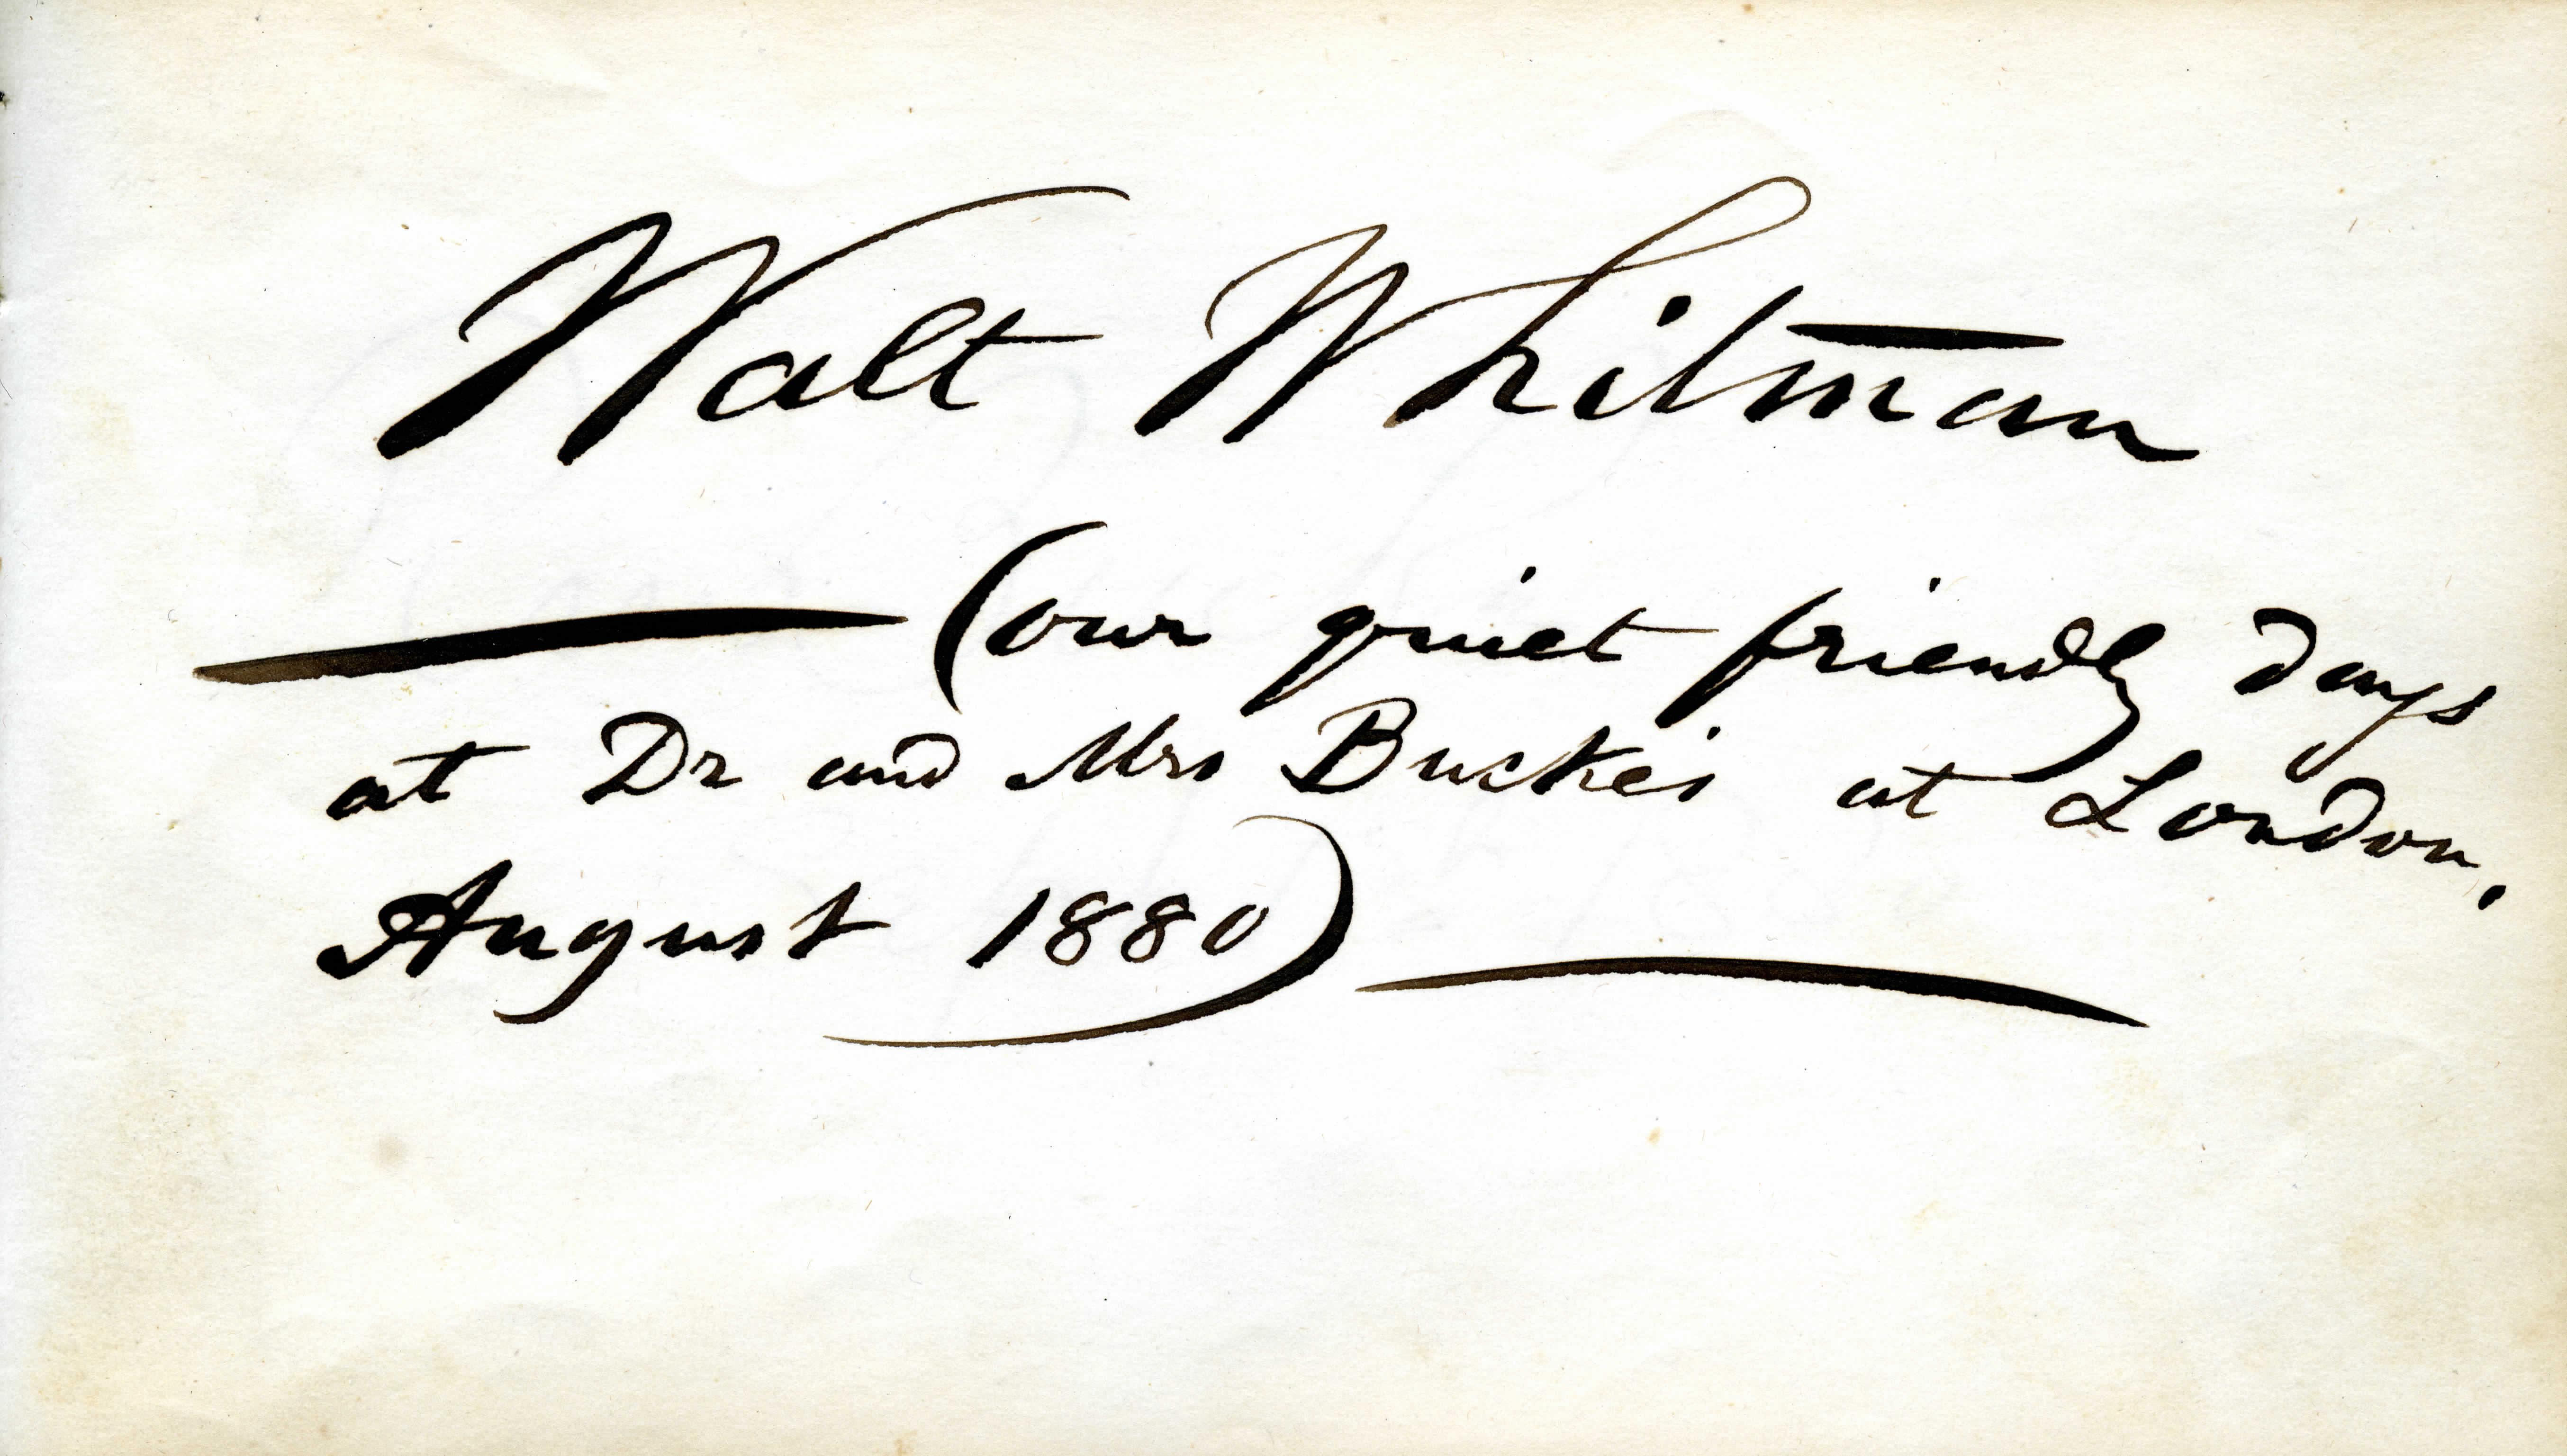 Walt Whitman
— (our quiet friendly days
at Dr and Mrs Bucke's at London,
August 1880) —